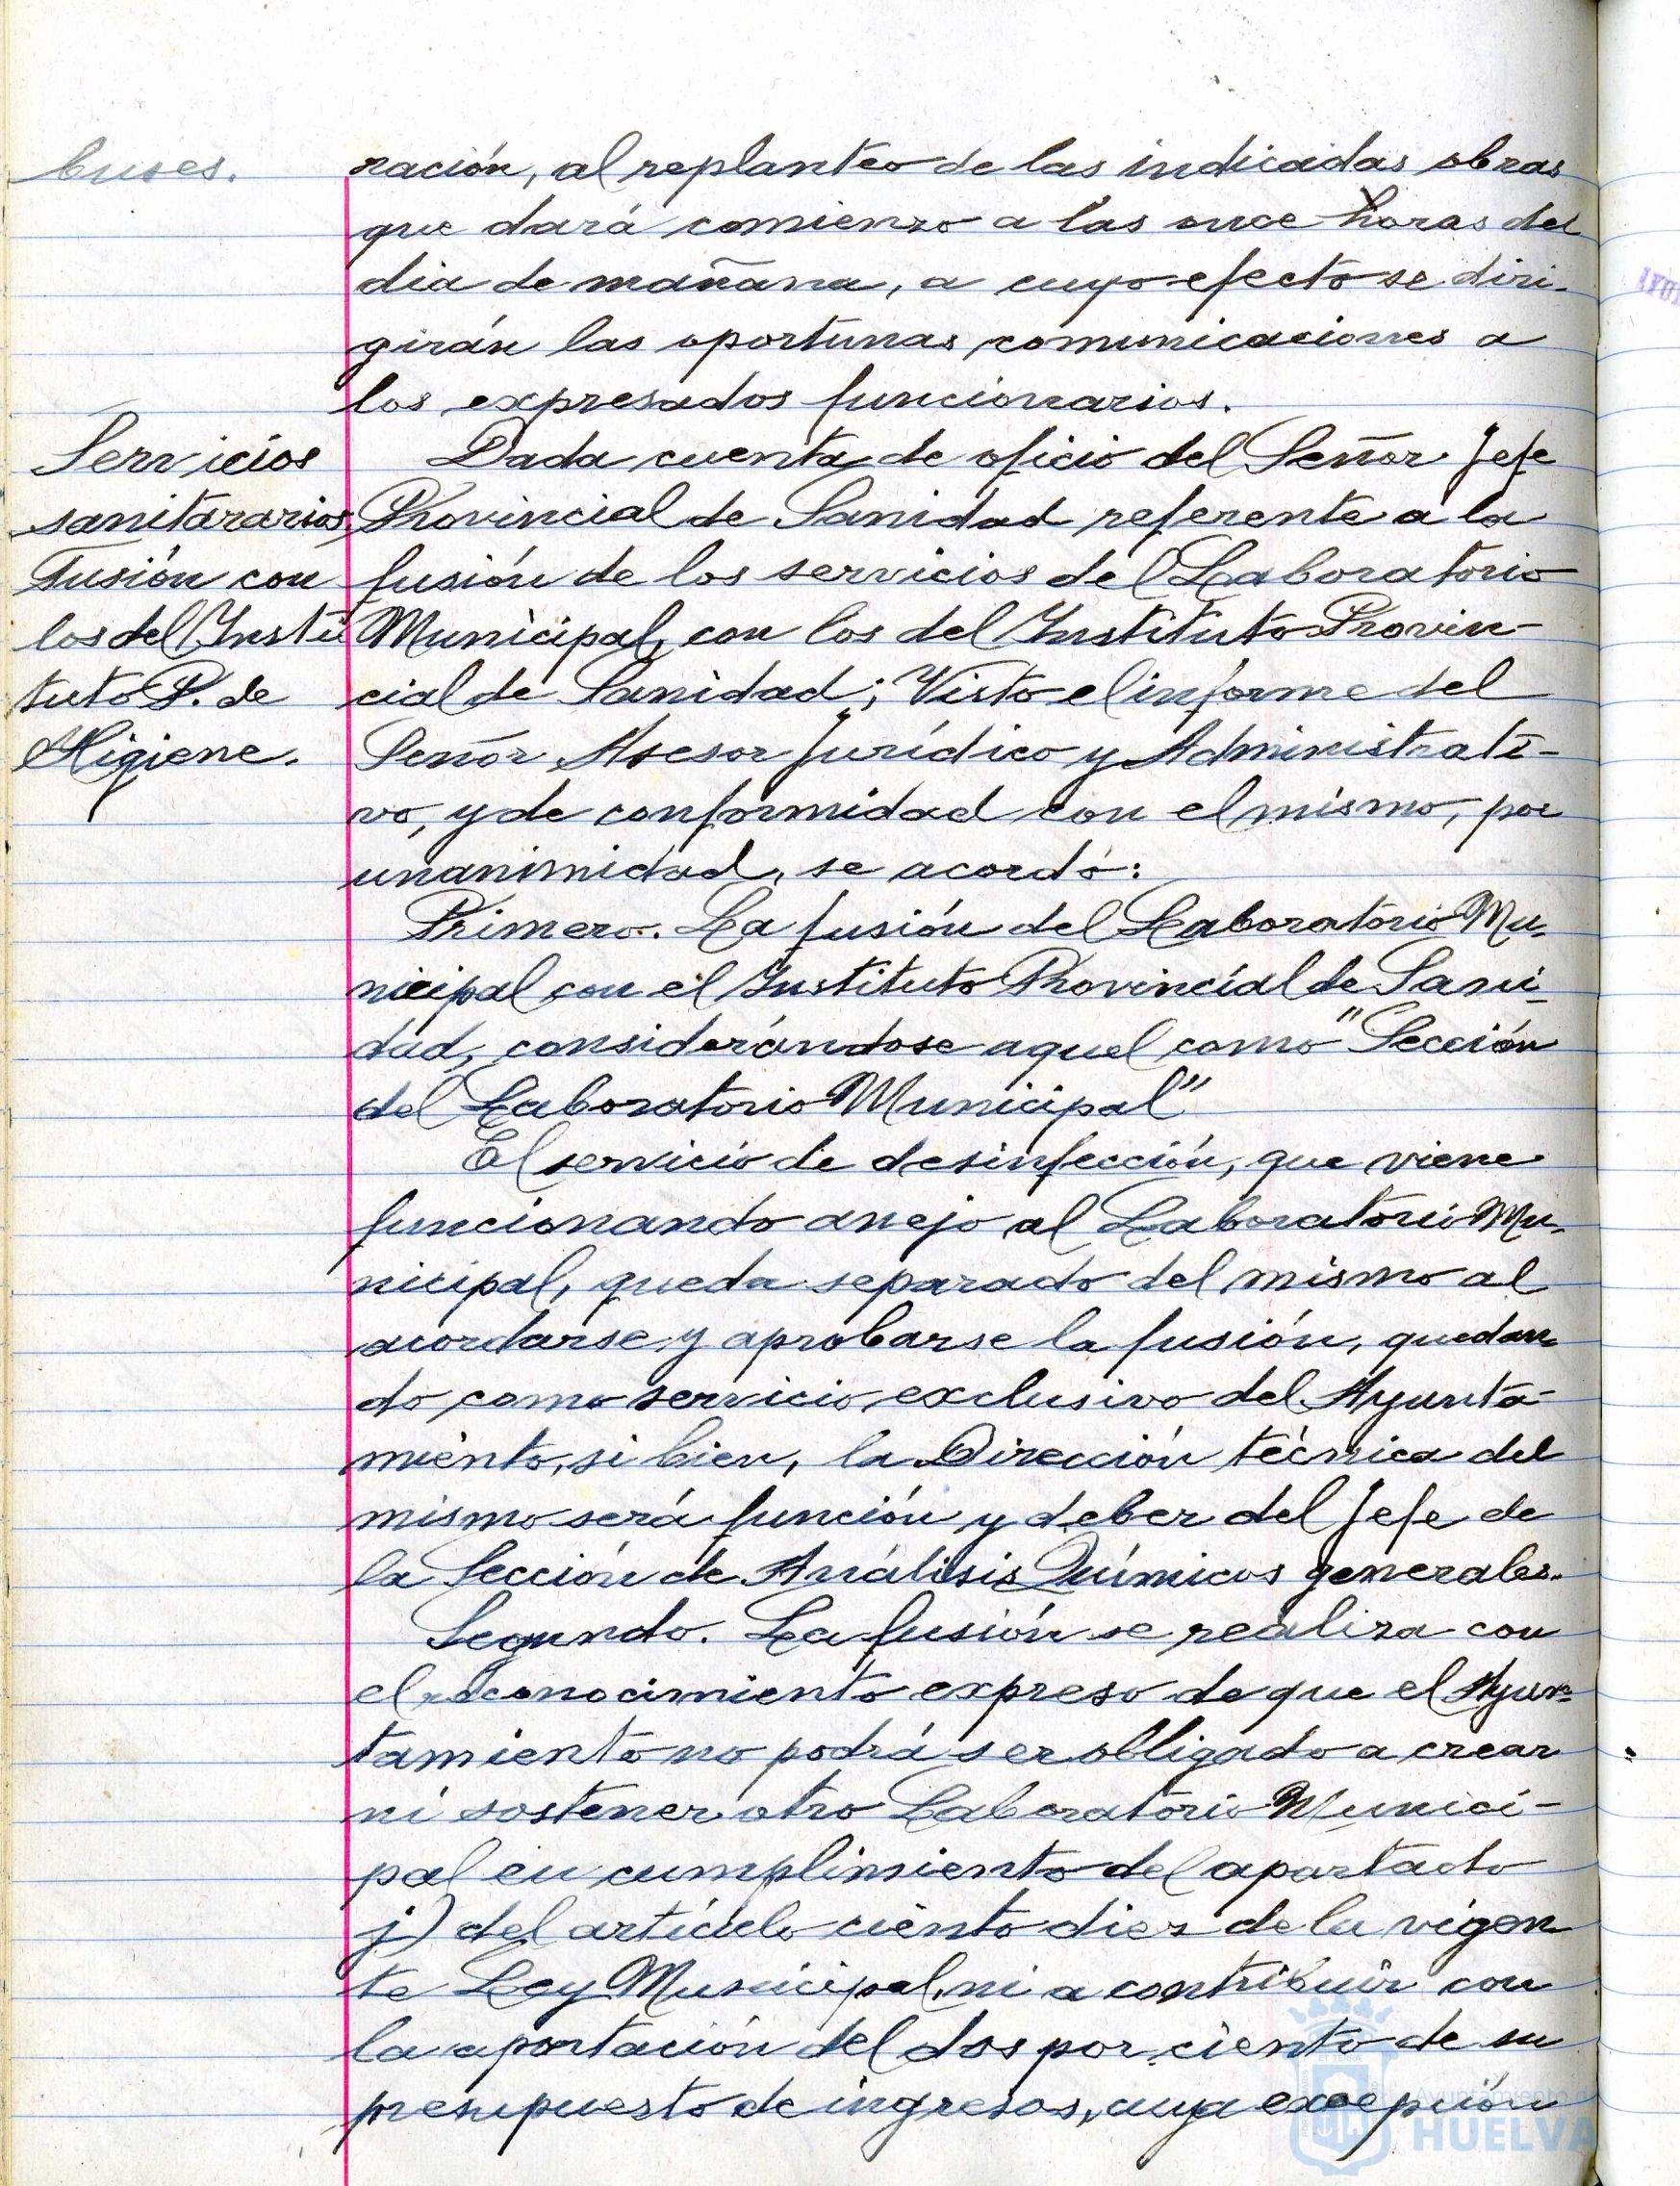 buses.
ración, al replanteo de las indicadas obras
que dará comienzo a las once horas del
dia de mañana, a cuyo efecto se diri-
girán las oportunas comunicaciones a
los expresados funcionarios.
Servicios
sanitararios
Fusión con
los del Insti
tuto P. de
Higiene.
Dada cuenta de oficio del Señor Jefe
Provincial de Sanidad referente a la
fusión de los servicios del Laboratorio
Municipal, con los del Instituto Provin-
cial de Sanidad; Visto el informe del
Señor Asesor Jurídico y Administrati-
vo, y de conformidad con el mismo, por
unanimidad, se acordó:
Primero. La fusión del Laboratorio Mu-
nicipal con el Instituto Provincial de Sani-
dad, considerándose aquel como "Sección
del Laboratorio Municipal"
El servicio de desinfección, que viene
funcionando anejo al Laboratorio Mu-
nicipal, queda separado del mismo al
acordarse y aprobarse la fusión, quedan-
do como servicio exclusivo del Ayunta-
miento, si bien, la Dirección técnica del
mismo será función y deber del Jefe de
la Sección de Análisis Químicos generales.
Segundo. La fusión se realiza con
el reconocimiento expreso de que el Ayun-
tamiento no podrá ser obligado a crear
ni sostener otro Laboratorio Munici-
pal en cumplimiento del apartado
j) del artículo ciento diez de la vigen
te Ley Municipal, ni a contribuir con
la aportación del dos por ciento de su
presupuesto de ingresos, cuya excepción
Ayuntamiento de
HUELVA